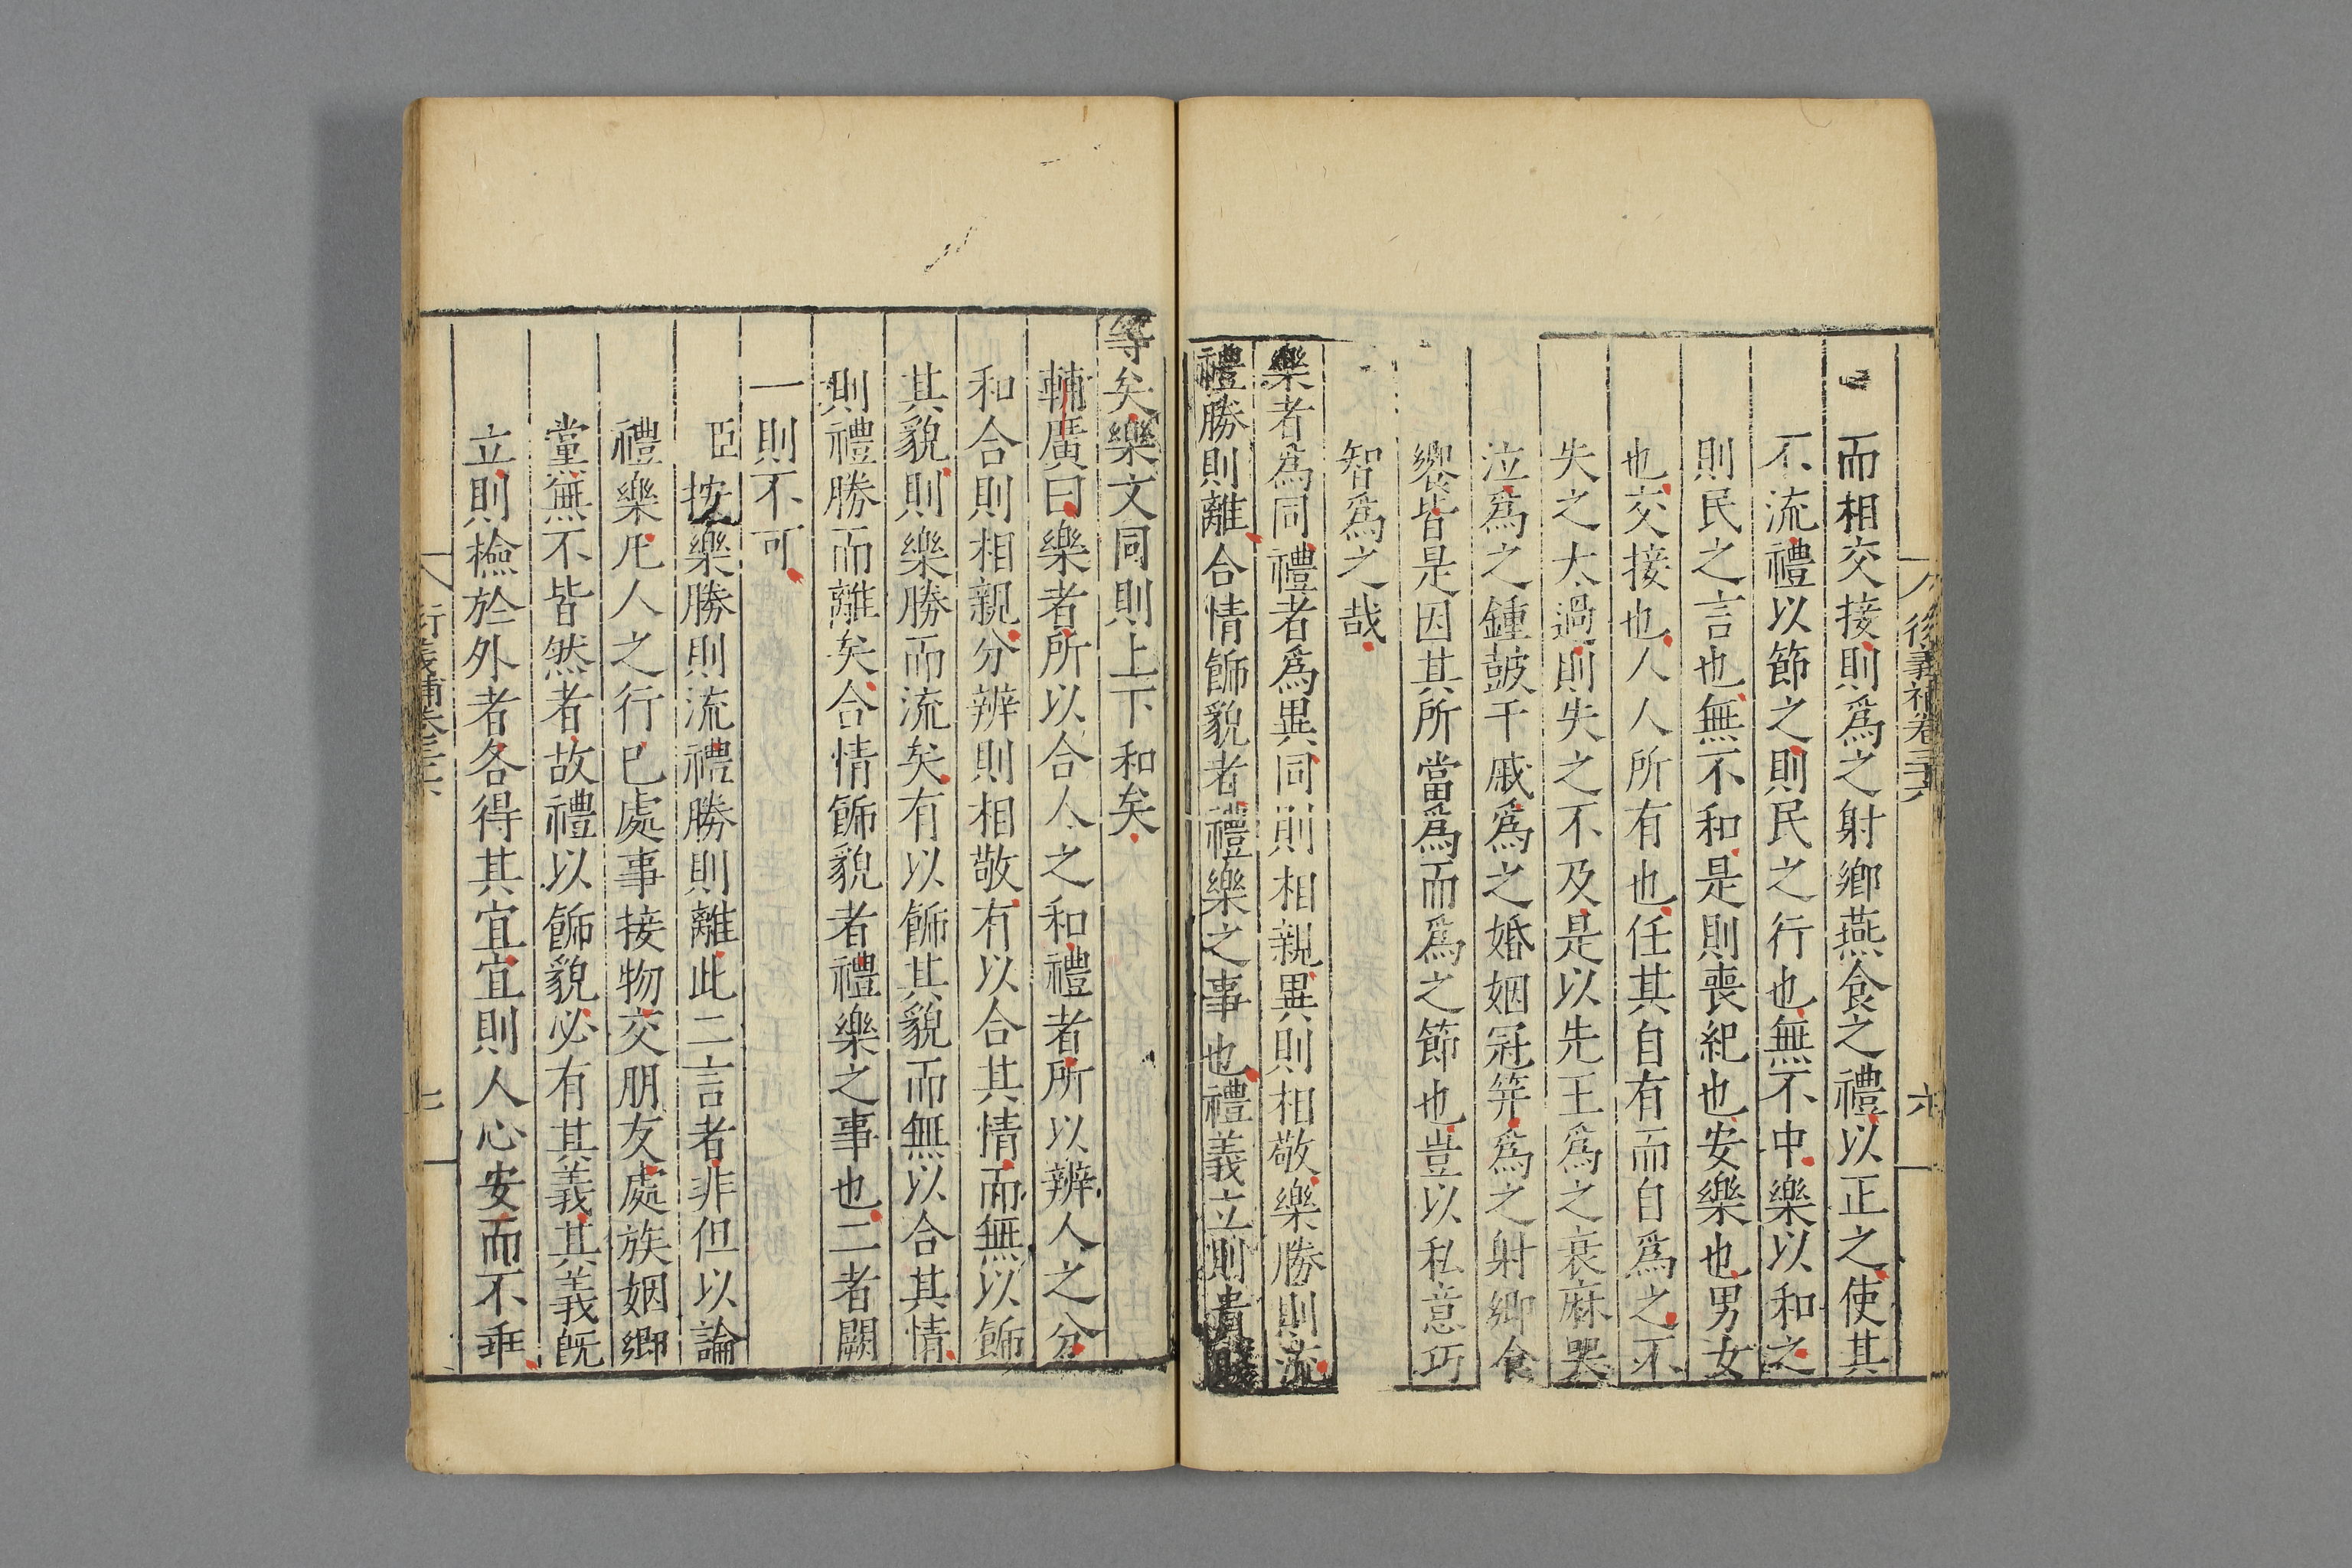 後義補卷三十六
六
而相交接則爲之射鄉燕食之禮以正之使其
不流禮以節之則民之行也無不中樂以和之
則民之言也無不和是則喪紀也安樂也男女
也交接也人人所有也任其自有而自爲之不
失之太過則失之不及是以先王爲之衰麻哭
泣爲之鍾鼓干戚爲之婚姻冠笄爲之射鄉食
饗皆是因其所當爲而爲之節也豈以私意巧
智爲之哉
樂者爲同禮者爲異同則相親異則相敬樂勝則流
禮勝則離合情飾貌者禮樂之事也禮義立則貴賤
等矣樂文同則上下和矣
輔廣曰樂者所以合人之和禮者所以辨人之分
和合則相親分辨則相敬有以合其情而無以飾
其貌則樂勝而流矣有以飾其貌而無以合其情
則禮勝而離矣合情飾貌者禮樂之事也二者闕
一則不可
臣按樂勝則流禮勝則離此二言者非但以論
禮樂凡人之行已處事接物交朋友處族姻鄉
黨無不皆然者故禮以飾貌必有其義其義既
立則檢於外者各得其宜宜則人心安而不乖
衍義補卷三十六
七